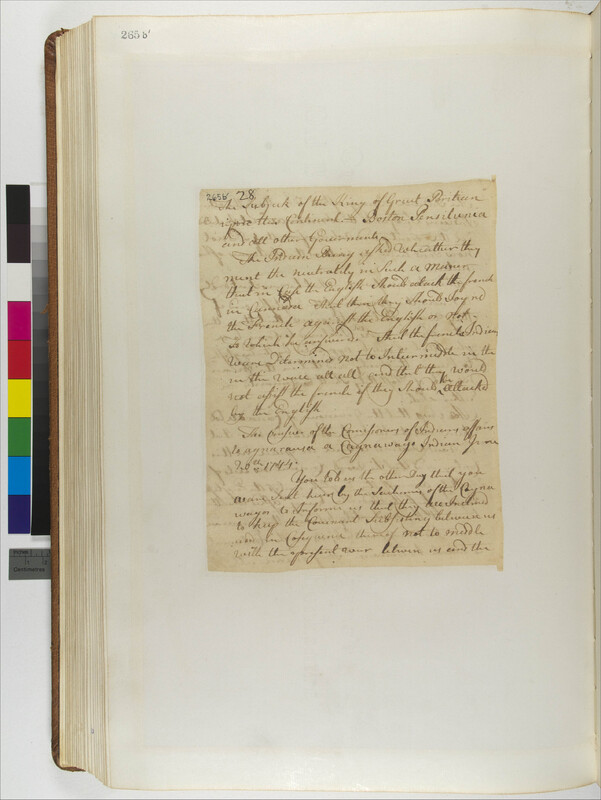 265 b'
265b' 28
The Subjects of the King of Great Brittain
upon this Continent Boston Pensilvania
and all other Goverments
The Person Being asked Wheather they
ment the neutrality in Such a Manner
that in Case the English Should attack the french
in Cannada And then they Should Joyn
the French against the English or Not
To Which he answerd that the french Indians
Ware Determind not to Intermiddle in the
in the Warr att all and that they Would
not assist the french if they Should be attacked
by the English
The Answer of the Comissioners of Indians affairs
to a Cagnawage Indian
20th 1744
You told us the other Day that you
ware Sent here by the Sachims of the Cagna
wages to Inform us that they are Inclined
to keep the Covenant Subsisting between us
now in Consequence thereof not to meddle
With the present warr between us and the